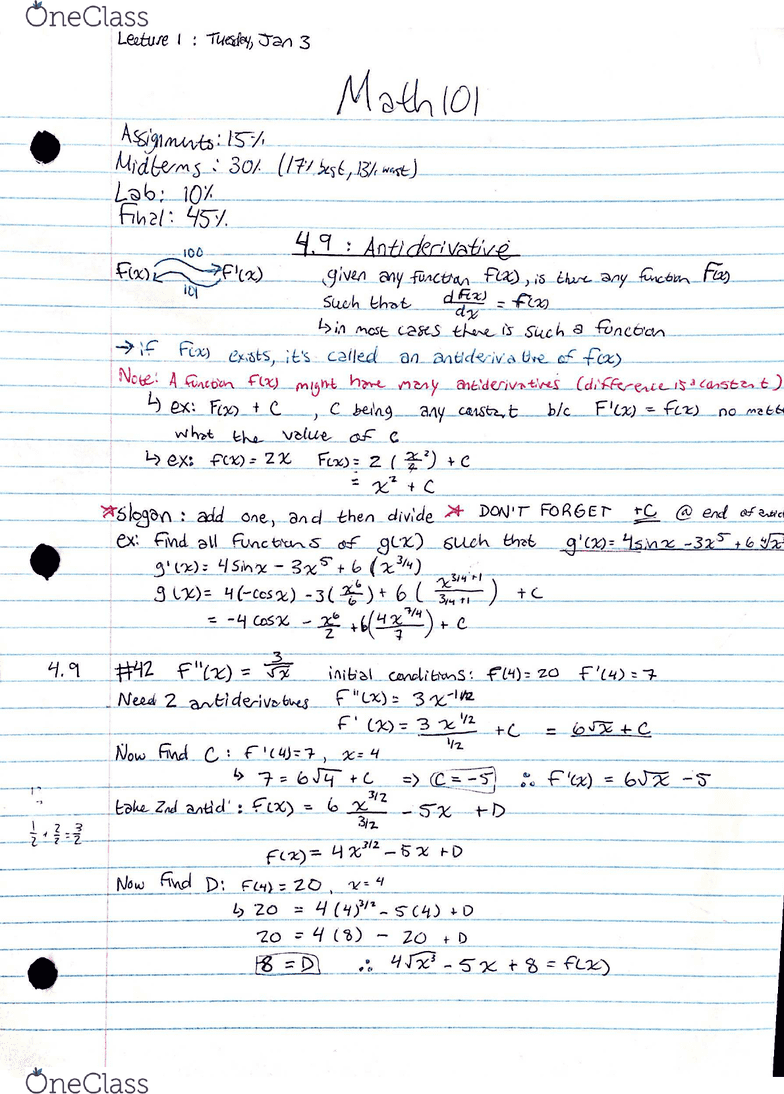 OneClass
Lecture 1 : Tuesday, Jan 3
Math 101
Assignments: 15%
Midterms : 30% (17% best, 13% worst)
Lab: 10%
Final: 45%
4.9 : Antiderivative
100
F(x) F'(x)
101
given any function f(x), is there any function F(x)
such that dF(x)/dx = f(x)
↳ in most cases there is such a function
→ if F(x) exists, it's called an antiderivative of f(x)
Note: A function f(x) might have many antiderivatives (difference is a constant)
↳ ex: F(x) + C , C being any constant b/c F'(x) = f(x) no matt
what the value of C
↳ ex: f(x) = 2x F(x) = 2 (x²/2) + C
= x² + C
*slogan : add one, and then divide * DON'T FORGET +C @ end of
ex: Find all functions of g(x) such that g'(x) = 4sinx - 3x⁵ + 6 ∜x
g'(x) = 4sinx - 3x⁵ + 6 (x^3/4)
g(x) = 4(-cosx) - 3(x⁶/6) + 6 (x^3/4+1 / 3/4+1) + C
= -4cosx - x⁶/2 + 6(4x^7/4 / 7) + C
4.9 #42 F''(x) = 3/√x initial conditions: f(4) = 20 F'(4) = 7
Need 2 antiderivatives F''(x) = 3x^-1/2
F'(x) = 3x^1/2 / 1/2 + C = 6√x + C
Now Find C : F'(4) = 7 , x = 4
↳ 7 = 6√4 + C => C = -5 ∴ F'(x) = 6√x - 5
take 2nd antid' : F(x) = 6 x^3/2 / 3/2 - 5x + D
1/2 + 2/2 = 3/2
F(x) = 4x^3/2 - 5x + D
Now Find D: F(4) = 20 , x = 4
↳ 20 = 4(4)^3/2 - 5(4) + D
20 = 4(8) - 20 + D
8 = D ∴ 4√x³ - 5x + 8 = f(x)
OneClass